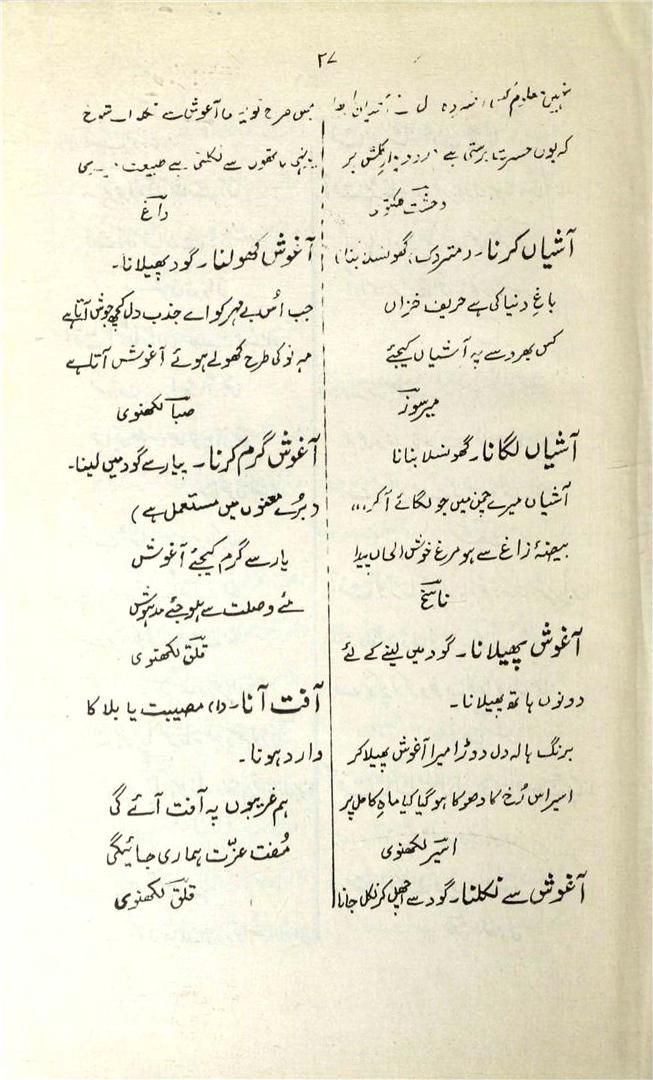 ۲۷
نہیں معلوم کس
کہ یوں حسرت برستی ہے در و دیوار گلشن پر
وحشت کلکتوی
آشیاں کرنا۔ (متروک) گھونسلا بنانا)
باغِ دنیا کی ہے حریف خزاں
کس بھروسے پہ آشیاں کیجئے
میر سوز
آشیاں لگانا۔ گھونسلا بنانا
آشیاں میرے چمن میں جو لگائے آ کر،،،
بیضۂ زاغ سے ہو مرغ خوش الحاں پیدا
ناسخ
آغوش پھیلانا۔ گود میں لینے کے لئے
دونوں ہاتھ پھیلانا۔
برنگ ہالہ دل دوڑا میرا آغوش پھیلا کر
اسیر اس رُخ کا دھوکا ہو گیا کیا ماہِ کامل پر
اسیر لکھنوی
آغوش سے نکلنا۔ گود سے اچھل کر نکل جانا
جس طرح آغوش سے شوخ
یونہی ہاتھوں سے نکلتی ہے طبیعت میری
داغ
آغوش کھولنا۔ گود پھیلانا۔
جب اُس بے مہر کو اے جذب دل کچھ جوش آتا ہے
مہ نو کی طرح کھولے ہوئے آغوش آتا ہے
صبا لکھنوی
آغوش گرم کرنا۔ پیار سے گود میں لینا۔
(بُرے معنوں میں مستعمل ہے)
یار سے گرم کیجئے آغوش
مئے وصلت سے ہو جئے مدہوش
قلق لکھنوی
آفت آنا۔ (۱) مصیبت یا بلا کا
وارد ہونا۔
ہم غریبوں پہ آفت آئے گی
مُفت عزّت ہماری جائیگی
قلق لکھنوی